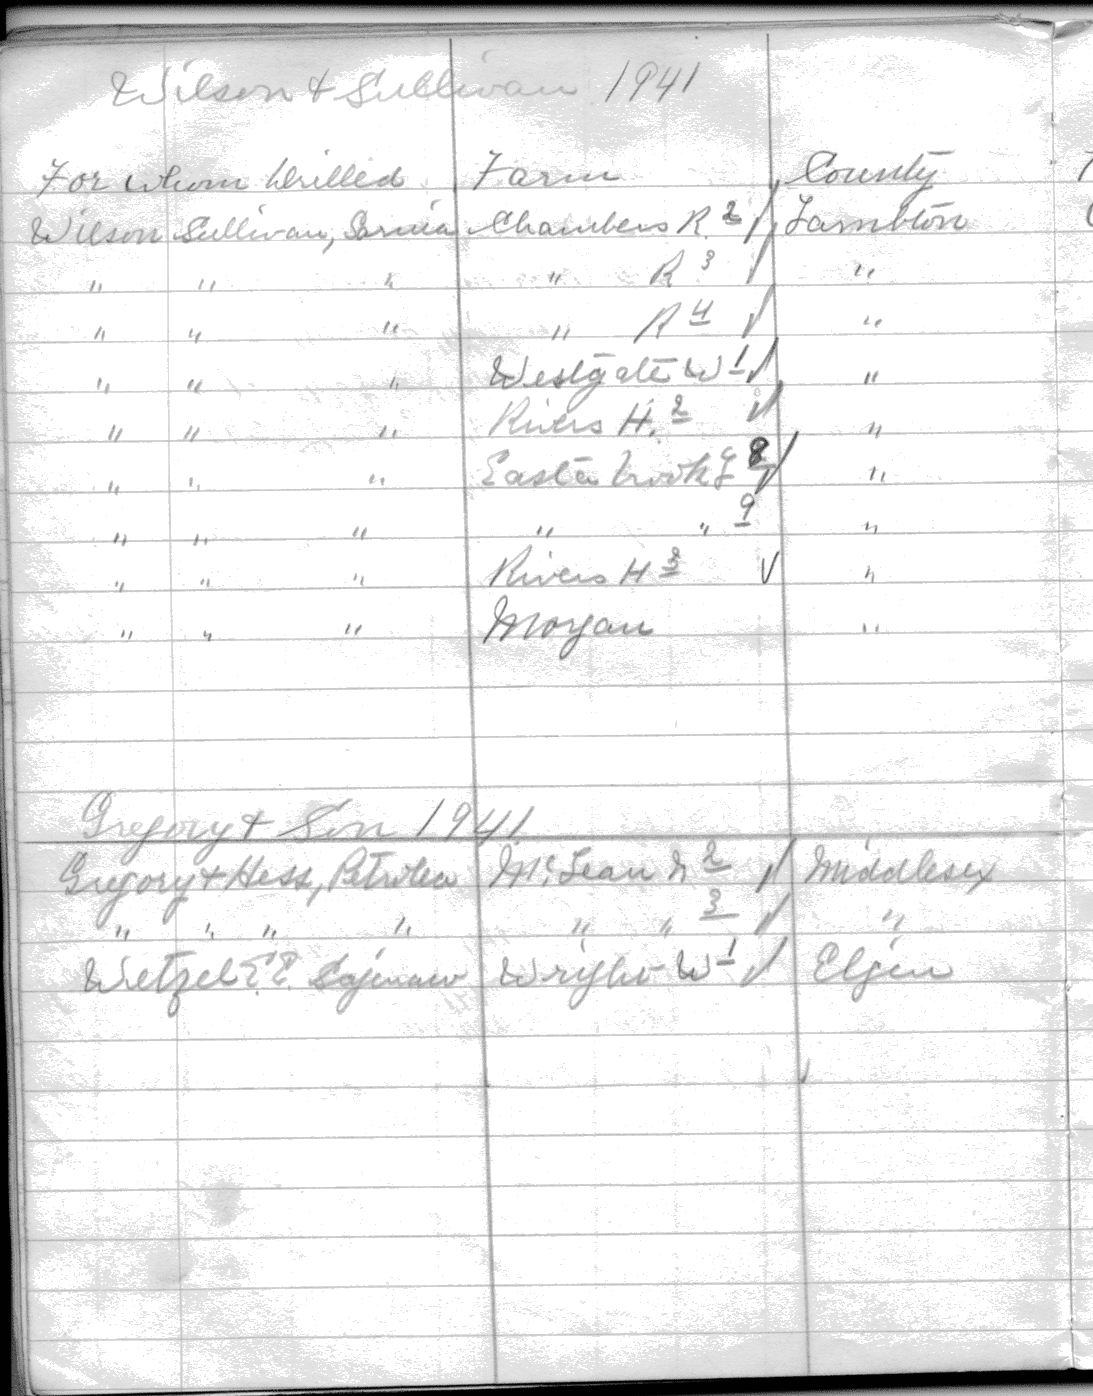 Wilson & Sullivan 1941
For whom Drilled Farm County
Wilson Sullivan, Sarnia Chambers R. 2 ✓ Lambton
" " " " R 3 ✓ "
" " " " R 4 ✓ "
" " " Westgate W 1 ✓ "
" " " Rivers H. 2 ✓ "
" " " Easterbrook G 8 ✓ "
" " " " " 9 "
" " " Rivers H 3 ✓ "
" " " Morgan "
Gregory & Son 1941
Gregory & Hess, Petrolea McLean N 2 ✓ Middlesex
" " " " " " 3 ✓ "
Wetzel E.E. Saginaw Wright W 1 ✓ Elgin